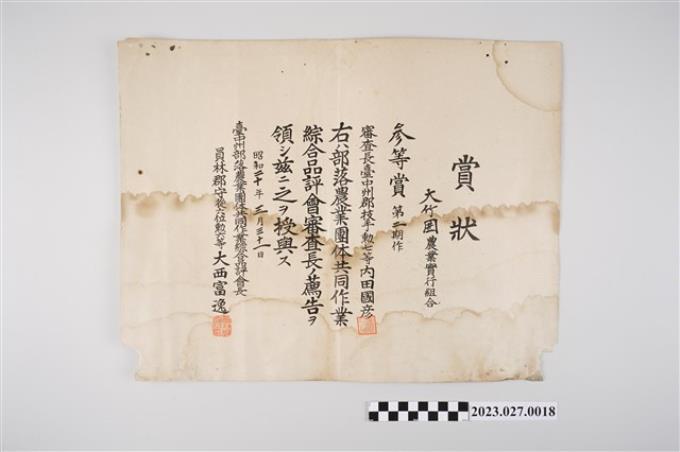 賞狀
大竹囝農業實行組合
參等賞 第二期作
審查長臺中州郡技手勲七等內田國彥
右ハ部落農業團体共同作業
綜合品評會審查長ノ薦告ヲ
領シ茲ニ之ヲ授與ス
昭和二十年三月三十一日
臺中州部落農業團体共同作業綜合品評會長
員林郡守從六位勲六等大西富逸
2023.027.0018